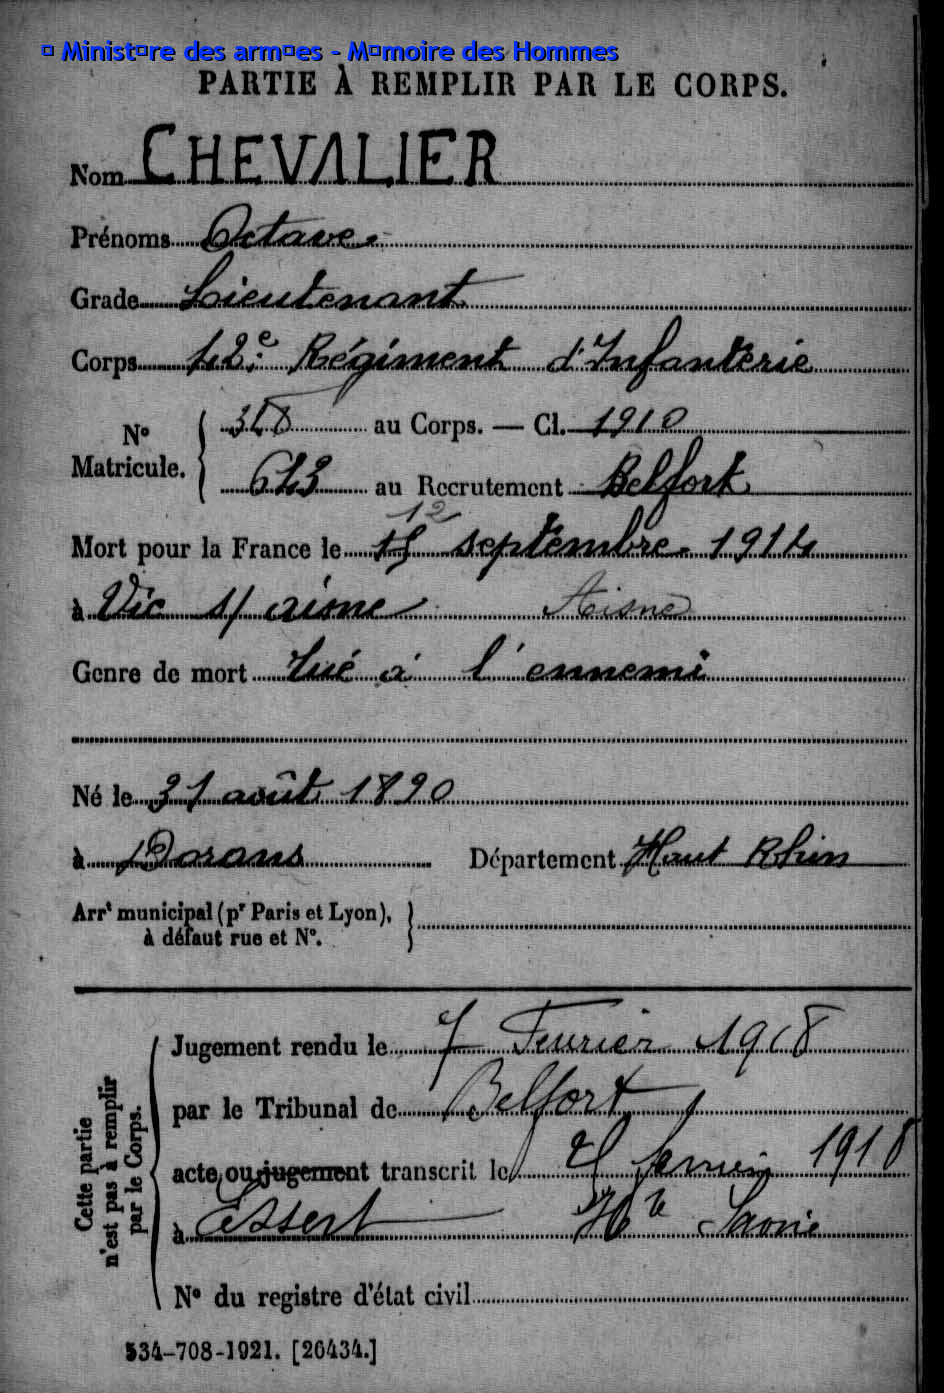 � Minist�re des arm�es - M�moire des Hommes
PARTIE À REMPLIR PAR LE CORPS.
Nom CHEVALIER
Prénoms Octave
Grade Lieutenant
Corps 42e Régiment d'Infanterie
No Matricule. 318 au Corps. — Cl. 1910
643 au Recrutement Belfort
12
Mort pour la France le 15 septembre 1914
à Vic s/ aisne Aisne
Genre de mort Tué à l'ennemi
Né le 31 août 1890
à Dorans Département Haut Rhin
Arrt municipal (pr Paris et Lyon),
à défaut rue et N°.
Cette partie n'est pas à remplir par le Corps.
Jugement rendu le 7 Fevrier 1918
par le Tribunal de Belfort
acte ou jugement transcrit le 1918
à Essert Hte Saone
N° du registre d'état civil
534-708-1921. [26434.]